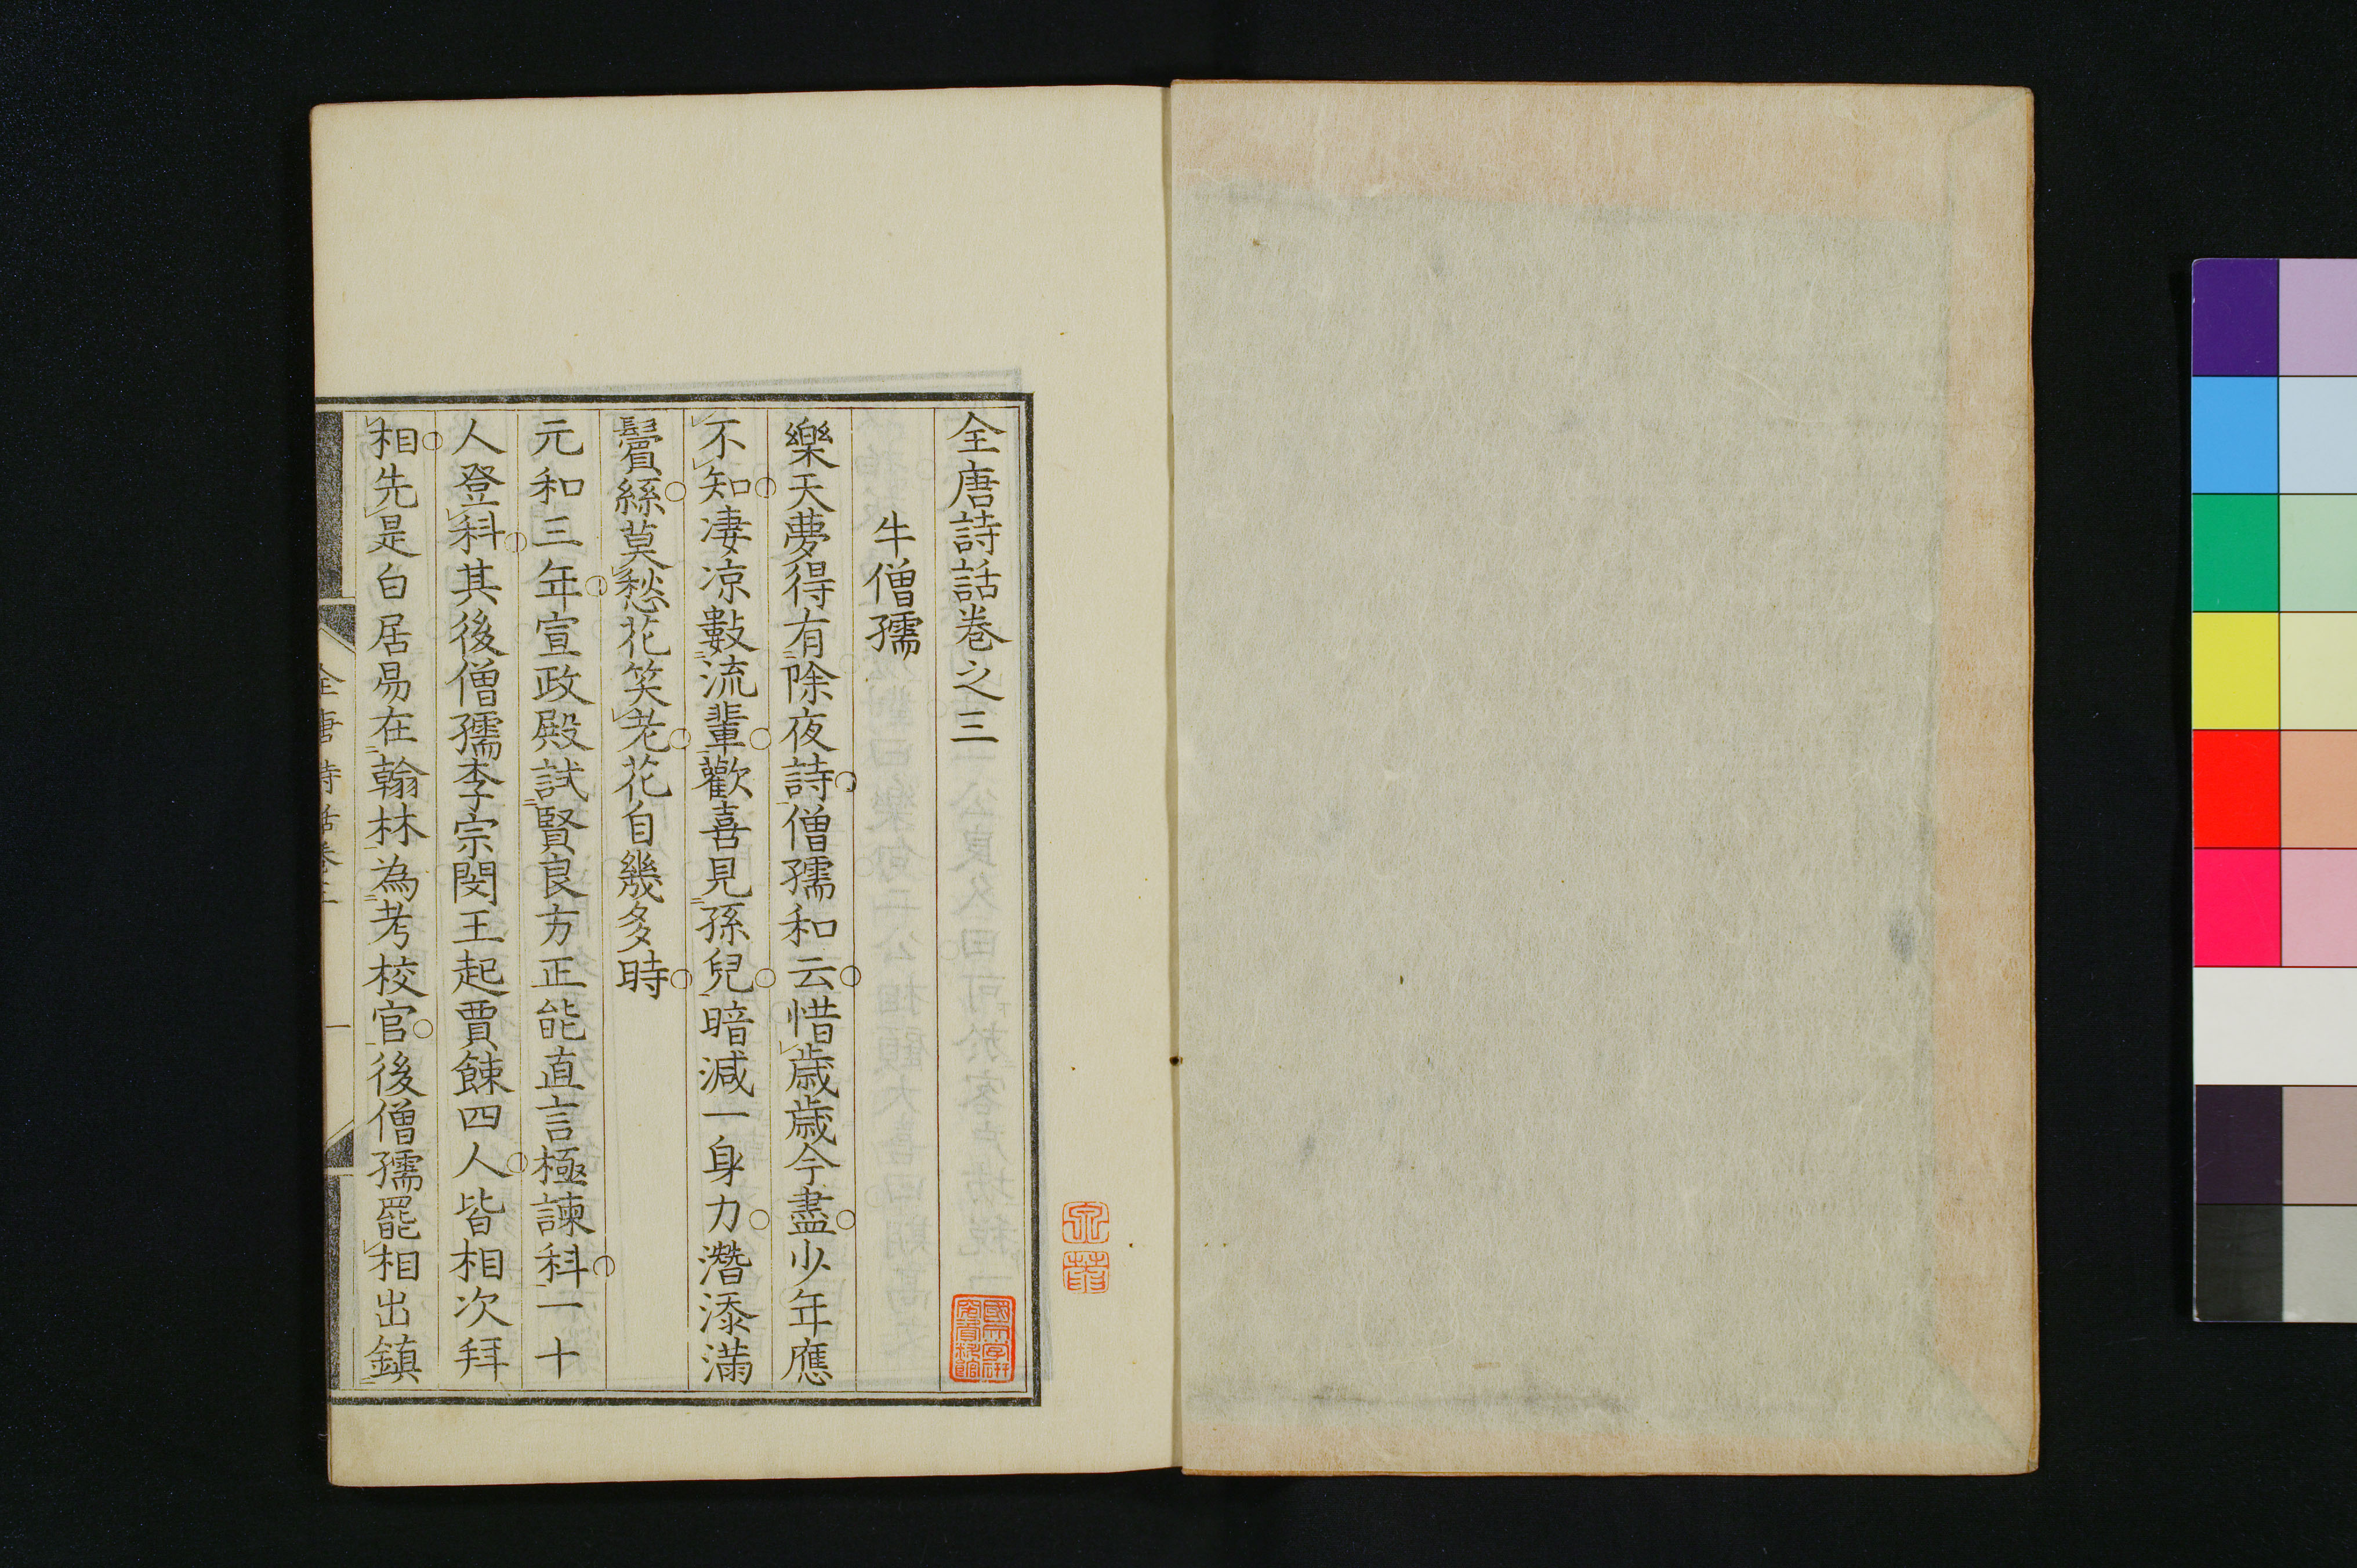 全唐詩話卷之三
牛僧孺
樂天夢得有除夜詩僧孺和云惜歲歲今盡少年應
不知淒凉數流輩歡喜見孫兒暗減一身力潛添滿
鬢絲莫愁花笑老花自幾多時
元和三年宣政殿試賢良方正能直言極諫科一十
人登科其後僧孺李宗閔王起賈餗四人皆相次拜
相先是白居易在翰林為考校官後僧孺罷相出鎮
全唐詩話卷三
一
國文学研
究資料館